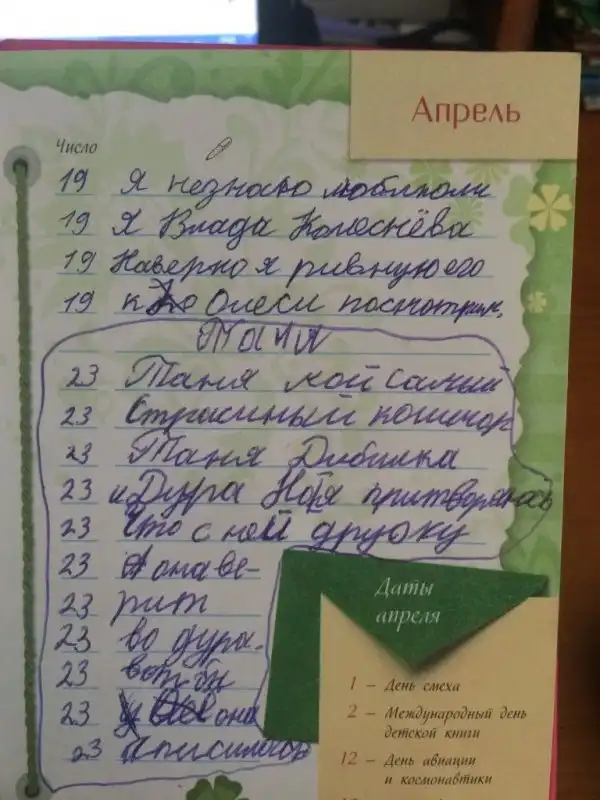 Апрель
Число
19 Я незнаю люблюли
19 Я Влада Колеснёва
19 Наверно я ривную его
19 к Олеси посмотрим,
Таня
23 Таня мой самый
23 Страшный кошмар
23 Таня Дибилка
23 и Дура Хотя притворяюсь
23 Что с ней дружу
23 А она ве-
23 рит
23 во дура.
23 вот бы
23 она
23
Даты
апреля
1 – День смеха
2 – Международный день
детской книги
12 – День авиации
и космонавтики